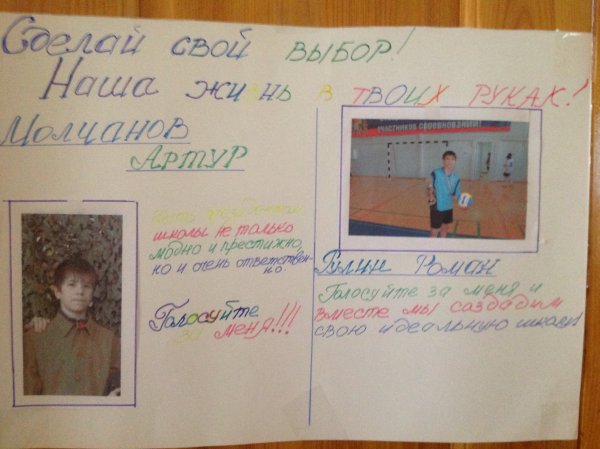 Сделай свой выбор!
Наша жизнь в твоих руках!
Молчанов
Артур
Быть президентом
школы не только
модно и престижно,
но и очень ответствен-
но.
Голосуйте
за меня!!!
УЧАСТНИКОВ СОРЕВНОВАНИЙ!
Гулин Роман
Голосуйте за меня и
вместе мы создадим
свою идеальную школу!